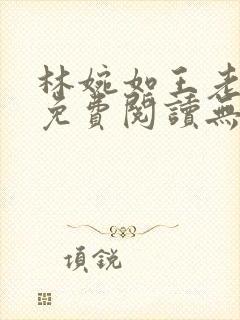 林婉如王老
免費閱讀無
項銳